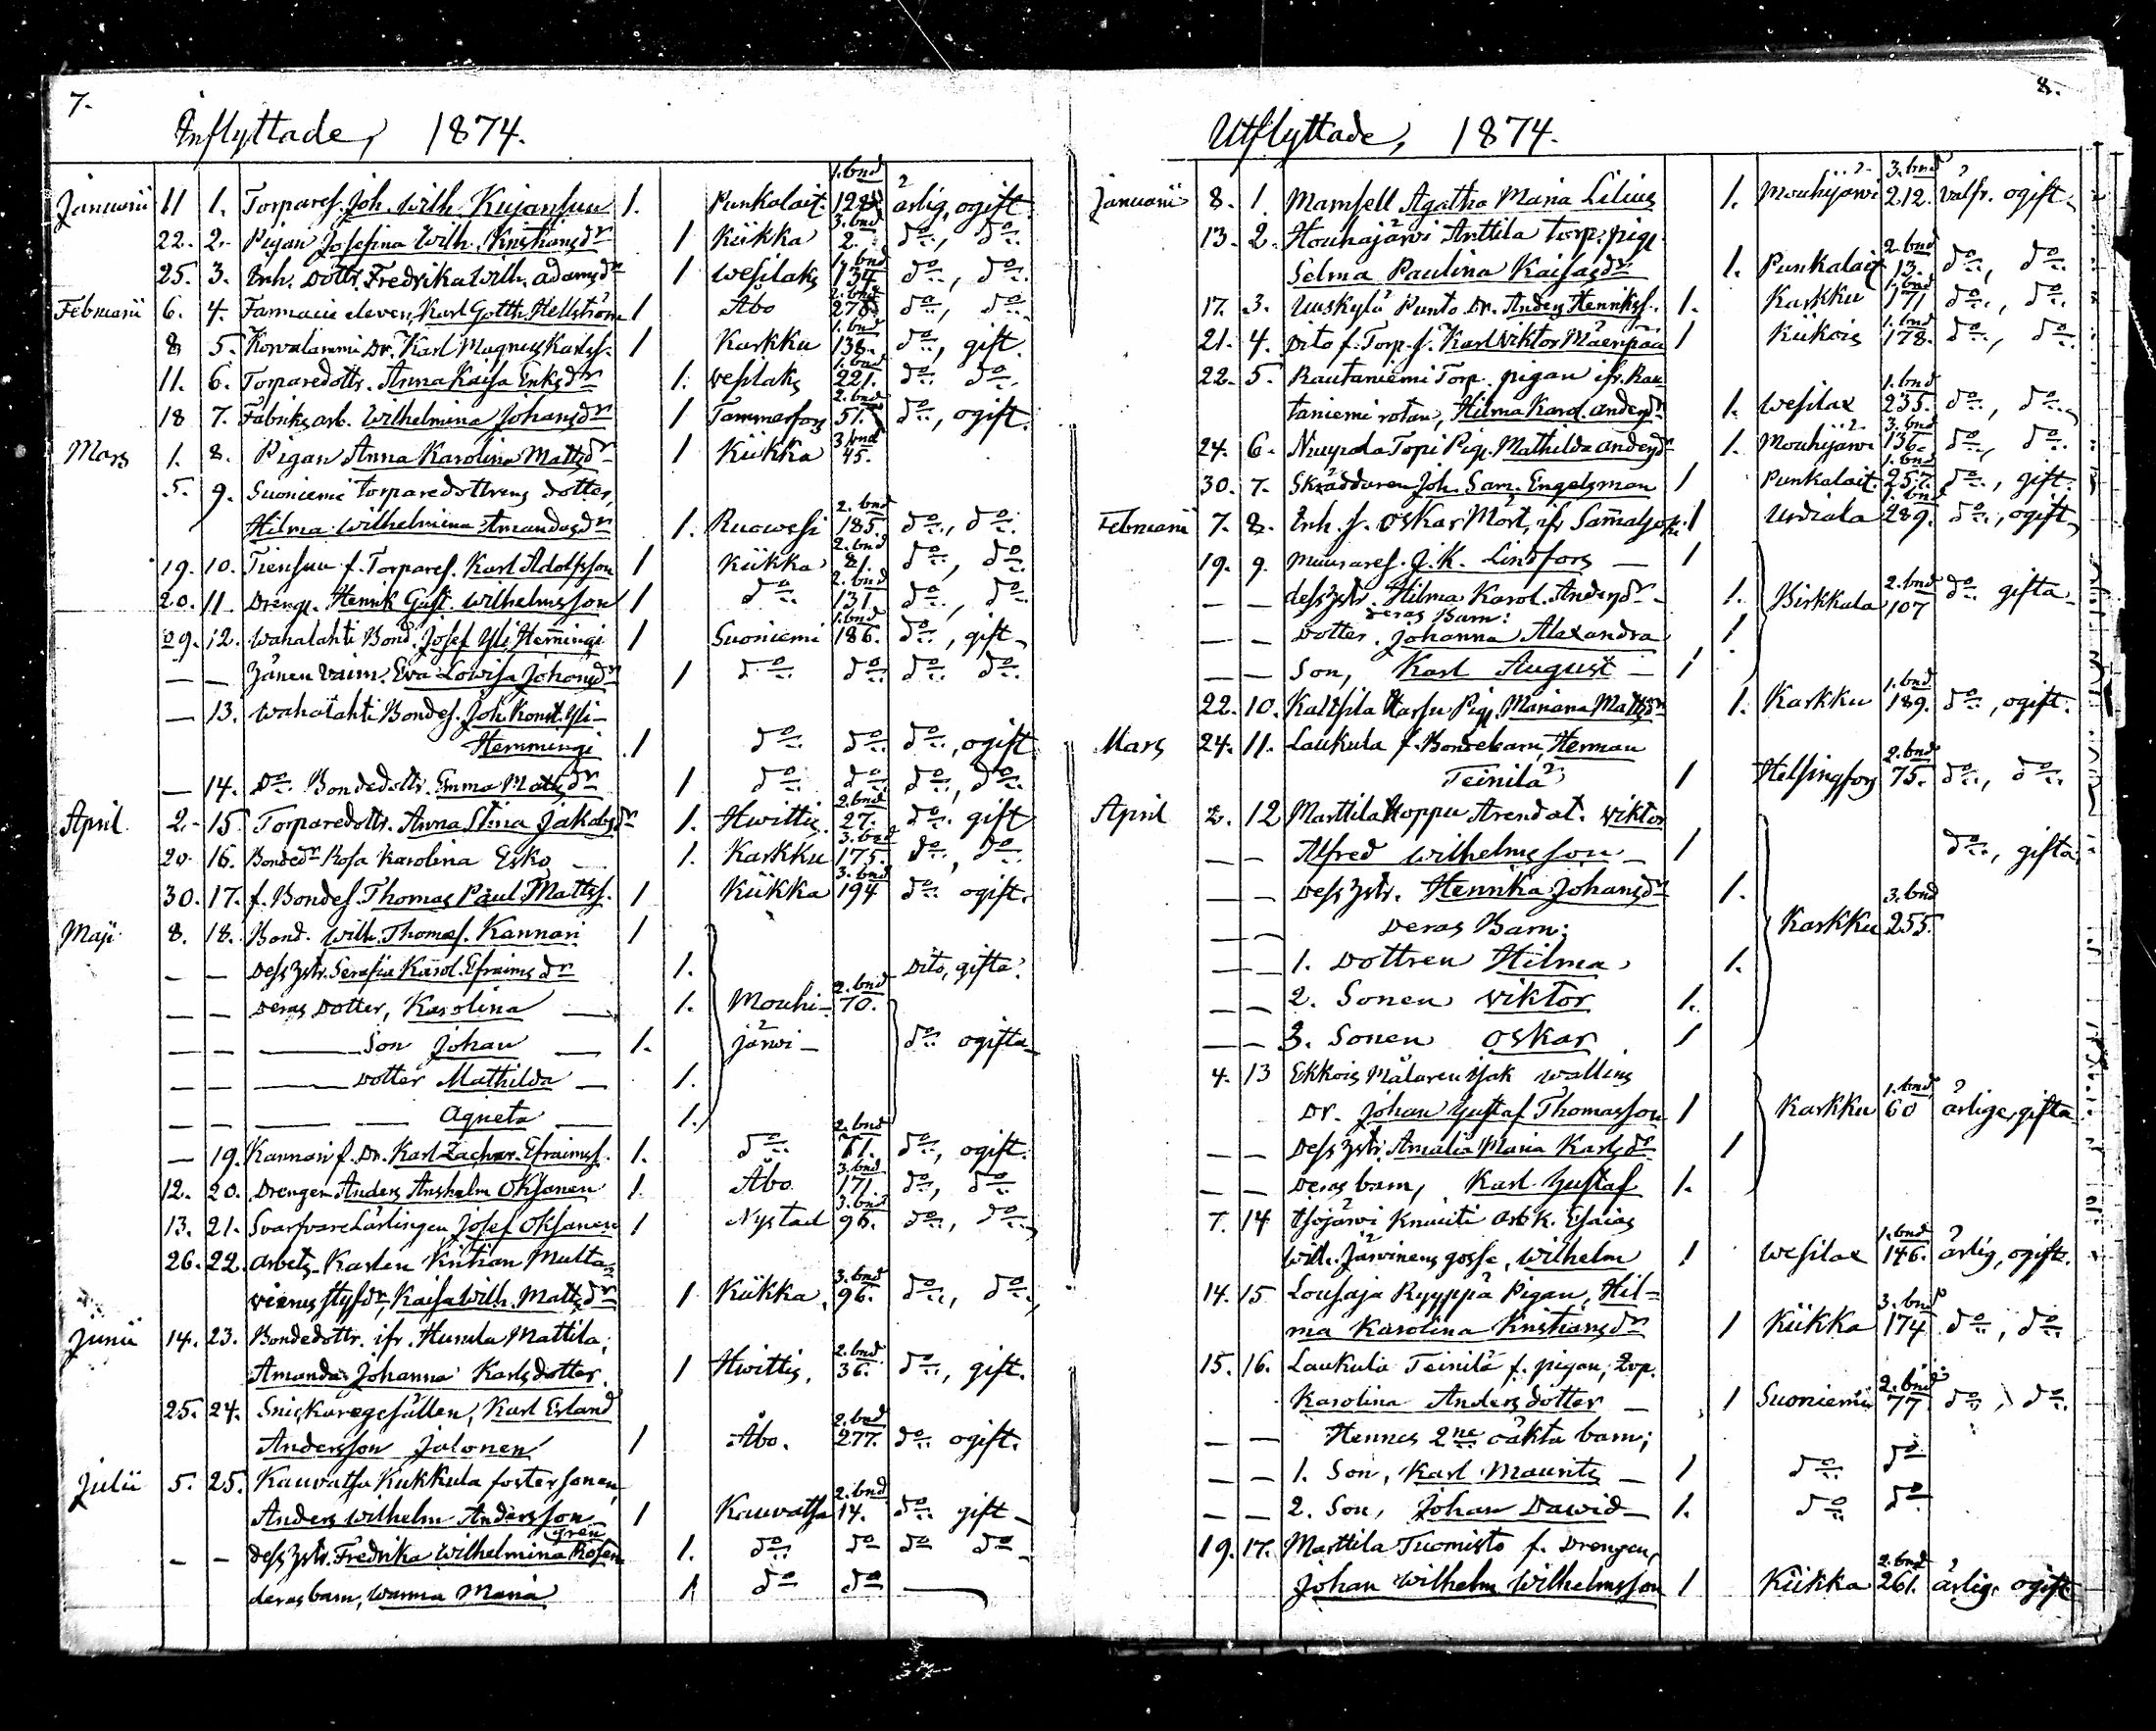 7.
Inflyttade, 1874.
Januarii 11 1. Torpares. Joh. Wilh. Kujansuu 1. Punkalait. 1.bnd 128 ärlig, ogift.
22. 2. Pigan Josefina Wilh. Kristiansdr 1 Kiikka 3.bnd 2. do, do
25. 3. Inh. Dottr. Fredrika Wilh. Adamsdr 1 Wesilaks 1.bnd 134 do, do
Februarii 6. 4. Farmacie eleven, Karl Gotth. Hellström 1 Åbo 2.bnd 278 do, do
8 5. Kowalammi Dr. Karl Magnus Karlss. 1 Karkku 1.bnd 138. do, gift.
11. 6. Torparedottr. Anna Kaisa Eriksdr 1. Wesilaks 1.bnd 221. do do
18 7. Fabriksarb. Wilhelmina Johansdr 1 Tammerfors 2.bnd 51. do, ogift.
Mars 1. 8. Pigan Anna Karolina Mattsdr 1 Kiikka 3.bnd 45.
5. 9. Suoniemi torparedottrens dotter,
Hilma Wilhelmina Amandasdr 1. Ruowesi 2.bnd 185. do, do
19. 10. Tiensuu f. Torpares. Karl Adolfsson 1 Kiikka 2.bnd 81. do, do
20. 11. Dreng. Henrik Gust. Wilhelmsson 1 do 2.bnd 131. do, do
29. 12. Wahalahti Bond. Josef Yli Hemmingi 1 Suoniemi 1.bnd 186. do, gift
— — Zänen vaim. Eva Lowisa Johansdr 1 do do do do
— 13. Wahalahti Bondes. Joh. Konst. Yli-
Hemmingi 1 do do do, ogift
— 14. Do Bondedottr. Emma Mattsdr 1 do do do, do
April 2. 15. Torparedottr. Anna Stina Jakobsdr 1. Hwittis 2.bnd 27. do gift
20. 16. Bondedr Rosa Karolina Esko 1. Karkku 3.bnd 175. do, do
30. 17. f. Bondes. Thomas Paul Mattss. 1 Kiikka 3.bnd 194 do ogift.
Maji 8. 18. Bond. Wilh. Thomas. Kannari 1
— — Dess Hstr. Serafia Karol. Efraimsdr 1. Dito, gifta.
— — Deras dotter, Karolina 1. Mouhi- 2.bnd 70.
— — Son Johan 1. järwi do ogifta
— — dotter Mathilda 1.
— — — Agneta 1.
— 19. Kannari f. Dr. Karl Zachar. Efraimss. 1. do 2.bnd 71. do, ogift.
12. 20. Drengen Anders Anshelm Oksanen 1. Åbo 3.bnd 171 do, do
13. 21. Svarfvare Lärlingen Josef Oksanen 1 Nystad 3.bnd 96. do, do
26. 22. Arbets-Karlen Kristian Multa-
vienis styfdr, Kaisa Wilh. Mattsdr 1 Kiikka 3.bnd 96. do, do
Junii 14. 23. Bondedottr. ifr. Humla Mattila,
Amanda Johanna Karlsdotter. 1 Hwittis, 2.bnd 36. do, gift.
25. 24. Snickaregesällen, Karl Erland
Andersson Jalonen 1 Åbo. 2.bnd 277. do ogift.
Julii 5. 25. Kauvatsa Kukkula fostersonen,
Anders Wilhelm Andersson 1 Kauvatsa 2.bnd 14. do gift
— — dess Hstr. Fredrika Wilhelmina Rosengren 1. do do do do
deras barn, Wanna Maria 1 do do —
8.
Utflyttade, 1874.
Januarii 8. 1. Mamsell Agatha Maria Lilius 1. Mouhijärwi 3.bnd 212. välfr. ogift.
13. 2. Houhajärwi Anttila Torp. pig.
Selma Paulina Kaisasdr 1. Punkalait 2.bnd 13. do, do
17. 3. Uuskylä Punto Dr. Anders Henrikss. 1. Karkku 1.bnd 171 do, do
21. 4. Dito f. Torp. s. Karl Viktor Mäenpää 1 Kiikois 1.bnd 178. do, do
22. 5. Rautaniemi Torp. pigan ifr. Rau-
taniemi rotan, Hilma Karol. Andersdr 1. Wesilax 1.bnd 235. do, do
24. 6. Nuupala Topi Pig. Mathilda Andersdr 1. Mouhijärwi 3.bnd 136. do, do
30. 7. Skräddaren Joh. Sam. Engelsman 1 Punkalait. 1.bnd 257. do, gift.
Februarii 7. 8. Inh. s. Oskar Mört, ifr Sammaljoki. 1 Urdiala 1.bnd 289. do, ogift
19. 9. Muurares. J. K. Lindfors 1
— — dess Hstr. Hilma Karol. Andersdr 1. Birkkala 2.bnd 107 do gifta
deras Barn:
— — Dotter. Johanna Alexandra 1
— — Son, Karl August 1
22. 10. Kaltsila Harsu Pig. Mariana Mattsdr 1. Karkku 1.bnd 189. do, ogift.
Mars 24. 11. Laukula f. Bondebarn, Herman
Teinilä 1 Helsingfors 2.bnd 75. do, do
April 2. 12 Marttila Hoppu Arendat. Viktor
— — Alfred Wilhelmsson 1 do, gifta
— — Dess Hstr. Henrika Johansdr 1.
— — Deras Barn; Karkku 3.bnd 255.
— — 1. Dottren Hilma 1.
— — 2. Sonen Viktor 1.
— — 3. Sonen Oskar 1
4. 13 Ekkois Målaren Isak Wallins
Dr. Johan Gustaf Thomasson 1 Karkku 1.bnd 60 ärlige, gifta
— — Dess Hstr. Amalia Maria Karlsdr 1
— — Deras barn, Karl Gustaf 1.
7. 14 Isojärwi Knuuti arb.k. Esaias
Wilh. Järvinens gosse, Wilhelm 1 Wesilax 1.bnd 146. ärlig, ogift.
14. 15 Lousaja Ryyppä Pigan, Hil-
ma Karolina Kristiansdr 1 Kiikka 3.bnd 174 do, do
15. 16. Laukula Teinilä f. pigan,
Karolina Andersdotter 1 Suoniemi 2.bnd 77 do, do
— — Hennes 2ne oäkta barn;
— — 1. Son, Karl Maurits 1 do do
— — 2. Son, Johan Dawid 1. do do
19. 17. Marttila Tuomisto f. Drengen,
Johan Wilhelm Wilhelmsson 1 Kiikka 2.bnd 261. ärlig, ogift